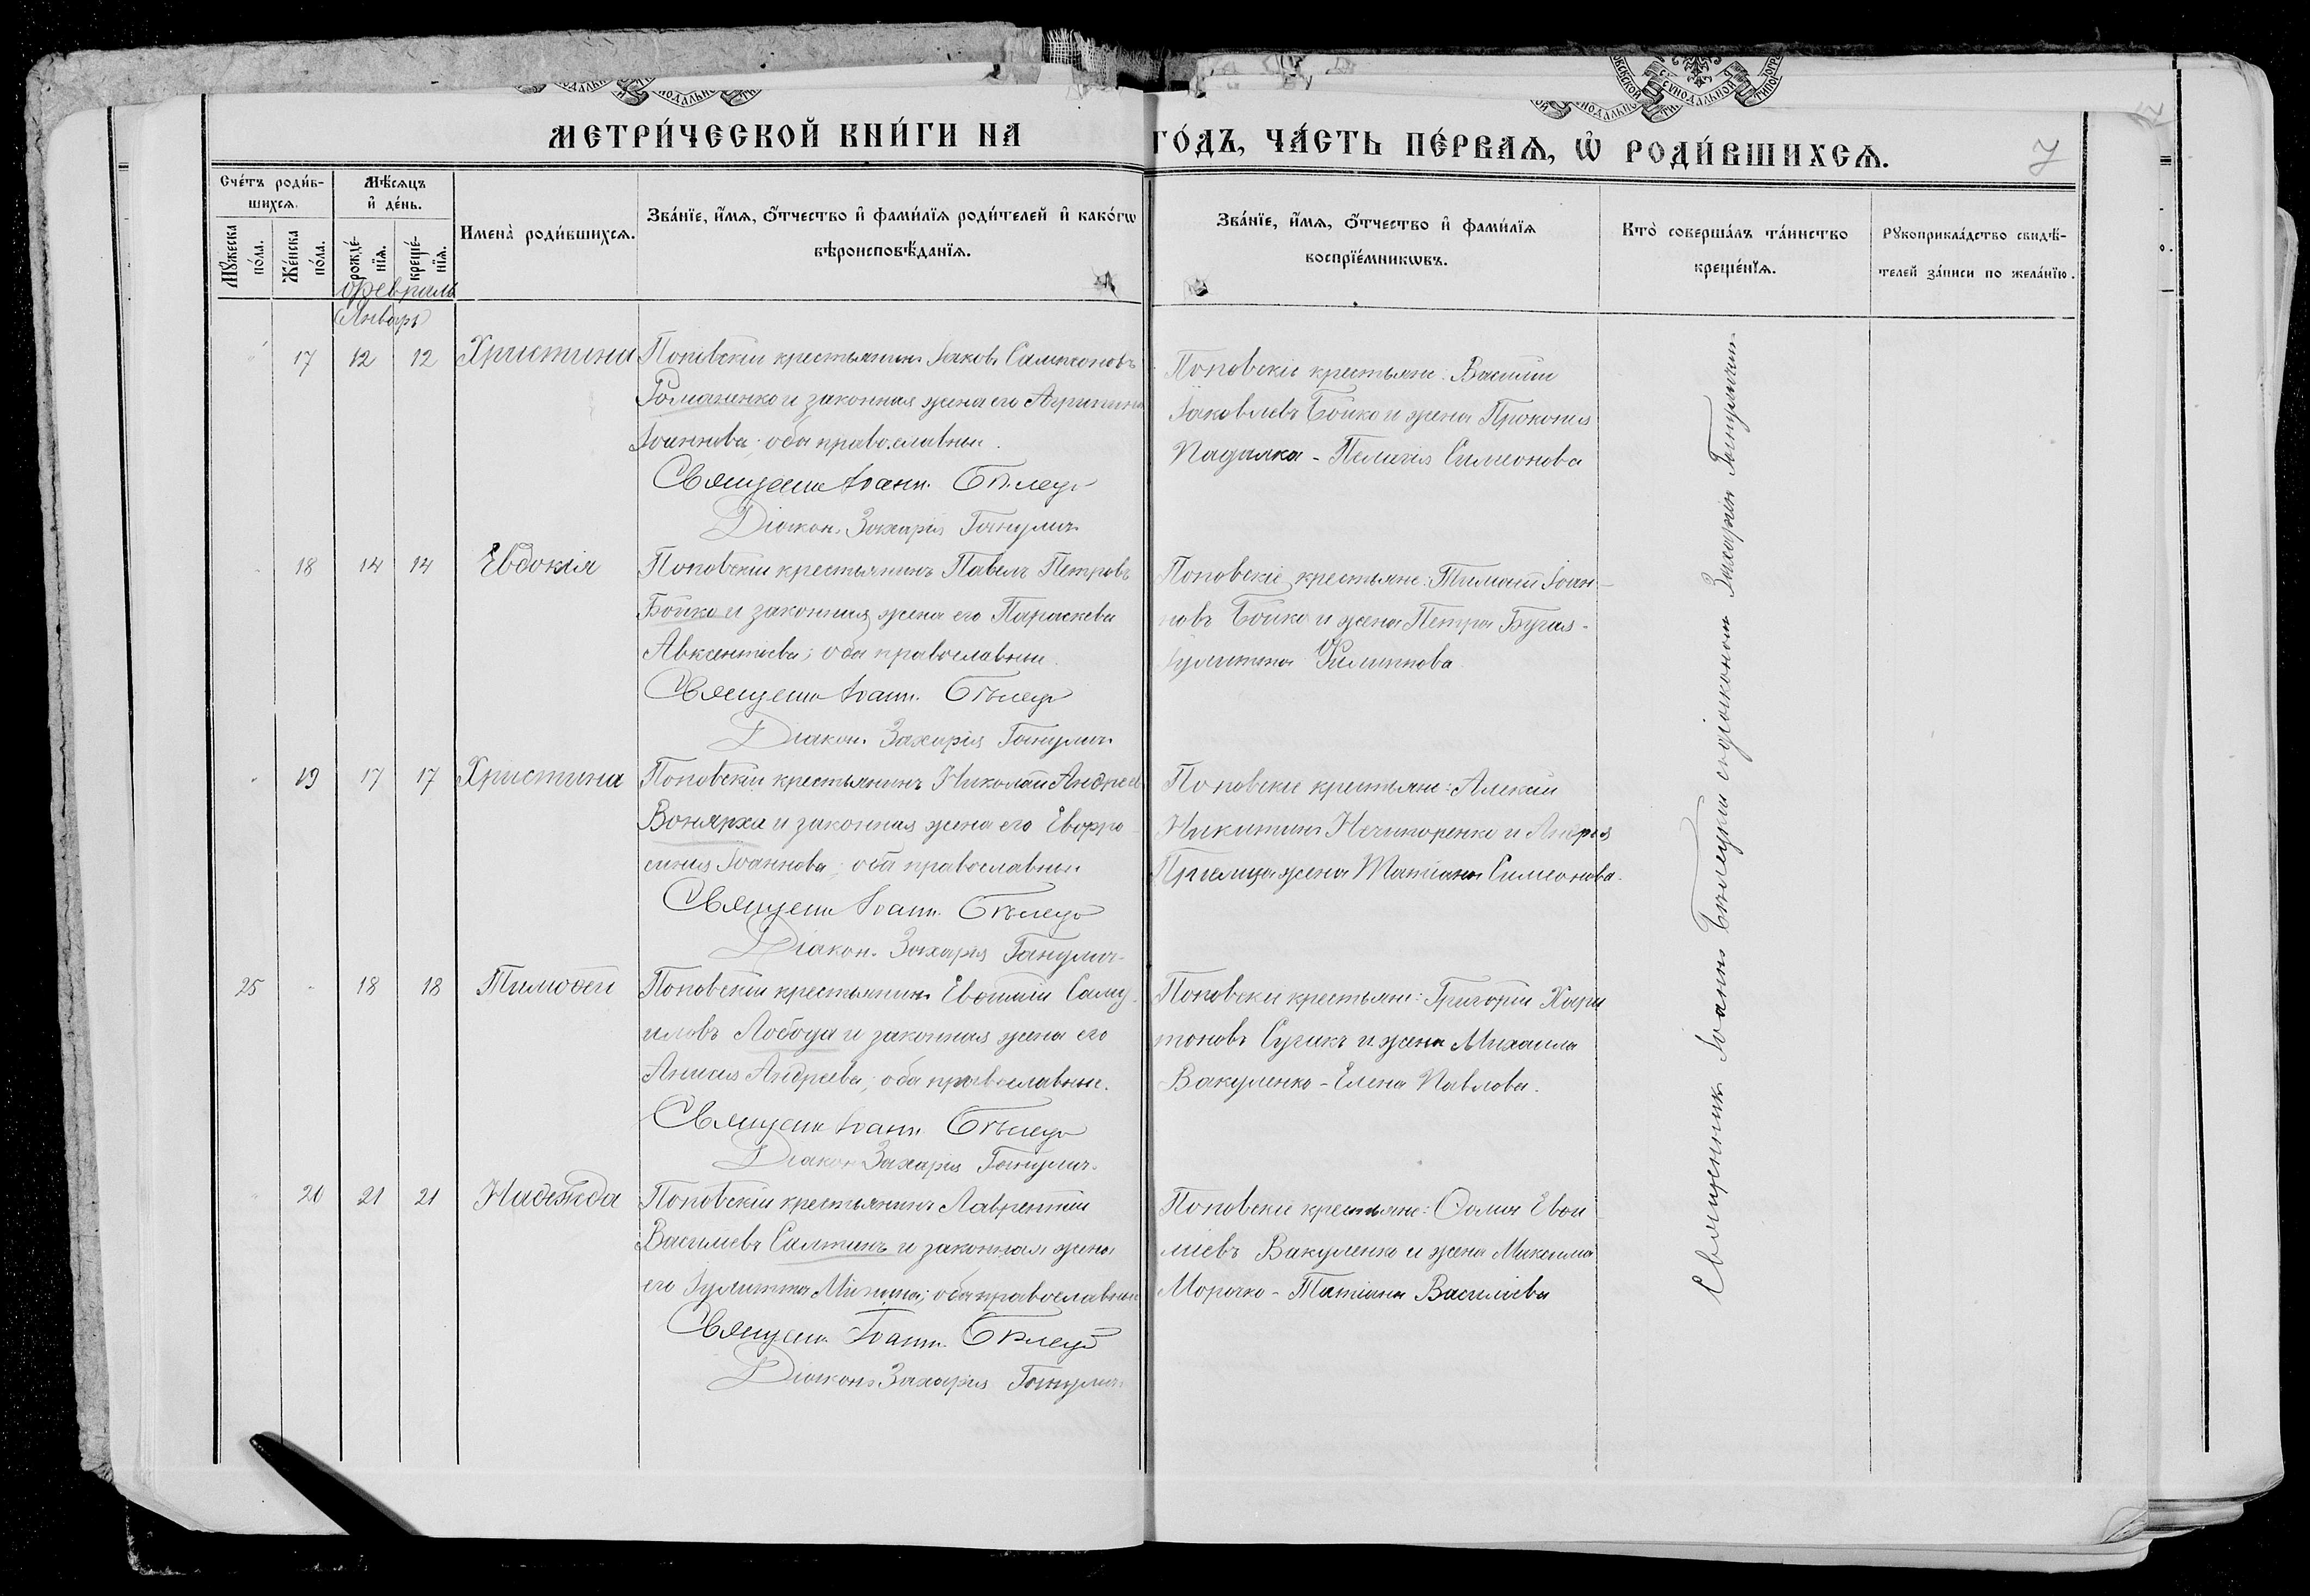 МЕТРИ́ЧЕСКОЙ КНИ́ГИ НА ГО́ДЪ, ЧА́СТЬ ПЕ́РВАѦ, Ѡ҆ РОДИ́ВШИХСѦ.
7
Сче́тъ роди́в-
шихсѧ.
Мꙋ́жеска
по́ла.
Же́нска
по́ла.
Мѣ́сѧцъ
и҆ де́нь.
рожде́-
нїѧ.
креще́-
нїѧ.
Имена̀ роди́вшихсѧ.
Зва́нїе, и҆́мѧ, ѻ҆́тчество и҆ фами́лїѧ роди́телей и҆ како́гѡ
вѣроисповѣ́данїѧ.
Зва́нїе, и҆́мѧ, ѻ҆́тчество и҆ фами́лїѧ
воспрїе́мникѡвъ.
Кто̀ соверша́лъ та́инство
креще́нїѧ.
Рꙋкоприкла́дство свидѣ́-
телей за́писи по жела́нїю.
Февраль
Январь
17 12 12 Христина
Поповскій крестьянинъ Іаковъ Сампсоновъ
Романенко и законная жена его Агрипина
Іоаннова; оба православные.
Священн Іоанн. Бѣлец
Діакон. Захарія
Поповскіе крестьяне: Василій
Іаковлевъ Бойко и жена Прокопія
Падалка - Пелагія Симеонова
18 14 14 Евдокія
Поповскій крестьянинъ Павелъ Петровъ
Бойко и законная жена его Параскева
Авксентіева; оба православные.
Священн Іоанн. Бѣлец
Діакон. Захарія
Поповскіе крестьяне: Тимоѳей Іоан-
новъ Бойко и жена Петра Бугая -
Іулитта Филиппова
19 17 17 Христина
Поповскій крестьянинъ Николай Андреев
Вонярха и законная жена его Евфро-
синія Іоаннова; оба православные
Священн Іоанн. Бѣлец
Діакон. Захарія
Поповскіе крестьяне: Алексій
Никитинъ Нечипоренко и Андрея
жена Татіана Симеонова.
25 - 18 18 Тимоѳей
Поповскій крестьянинъ Евѳимій Саму-
иловъ Лобода и законная жена его
Анисія Андреева; оба православные.
Священн Іоанн. Бѣлец
Діакон Захарія
Поповскіе крестьяне: Григорій Хари
тоновъ и жена Михаила
Вакуленко - Елена Павлова.
20 21 21 Надежда
Поповскій крестьянинъ Лаврентій
Василіевъ и законная жена
его Іулитта; оба православные
Священн. Іоанн. Бѣлец
Діаконъ Захарія
Поповскіе крестьяне: Ѳома Евѳи
міевъ Вакуленко и жена Максима
Морочко - Татіана Василіева
Священникъ Іоаннъ Бѣлецкій съ діакономъ Захаріею